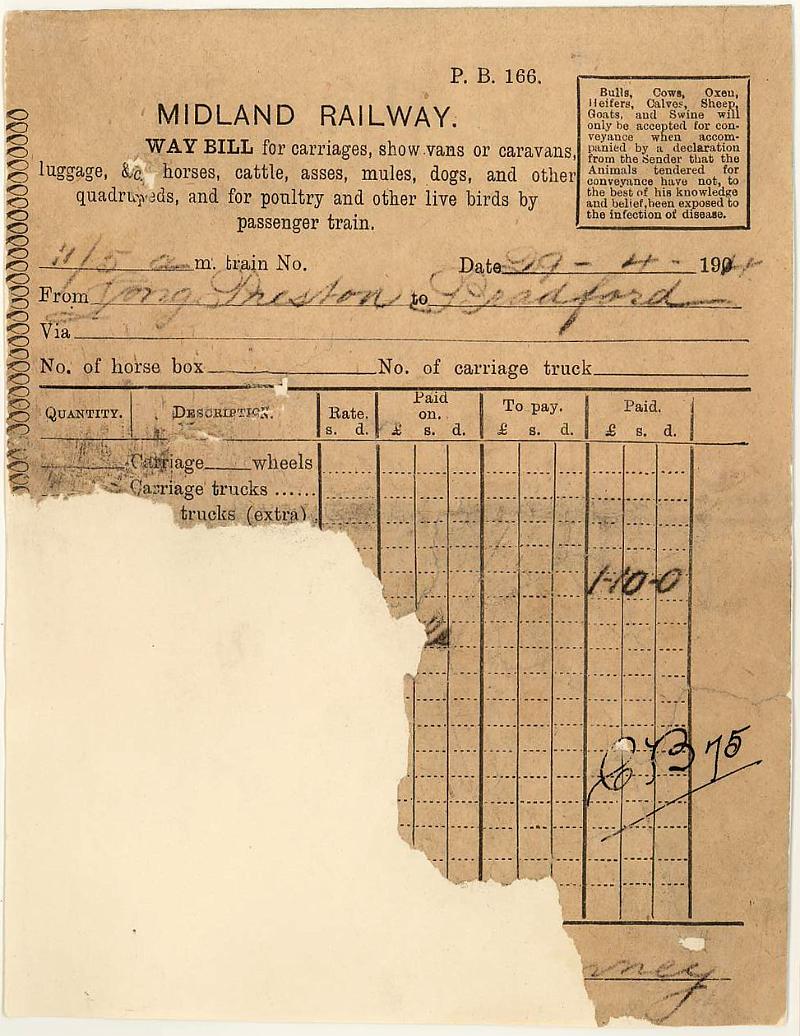 P. B. 166.
MIDLAND RAILWAY.
WAY BILL for carriages, show vans or caravans,
luggage, &c, horses, cattle, asses, mules, dogs, and other
quadrupeds, and for poultry and other live birds by
passenger train.
Bulls, Cows, Oxen,
Heifers, Calves, Sheep,
Goats, and Swine will
only be accepted for con-
veyance when accom-
panied by a declaration
from the Sender that the
Animals tendered for
conveyance have not, to
the best of his knowledge
and belief, been exposed to
the infection of disease.
11/5 a m. train No. Date 29 - 4 - 1904
From Long Preston to Bradford
Via
No. of horse box No. of carriage truck
QUANTITY. DESCRIPTION. Rate. Paid on. To pay. Paid.
s. d. £ s. d. £ s. d. £ s. d.
Carriage wheels
Carriage trucks ......
trucks (extra)
1-10-0
75